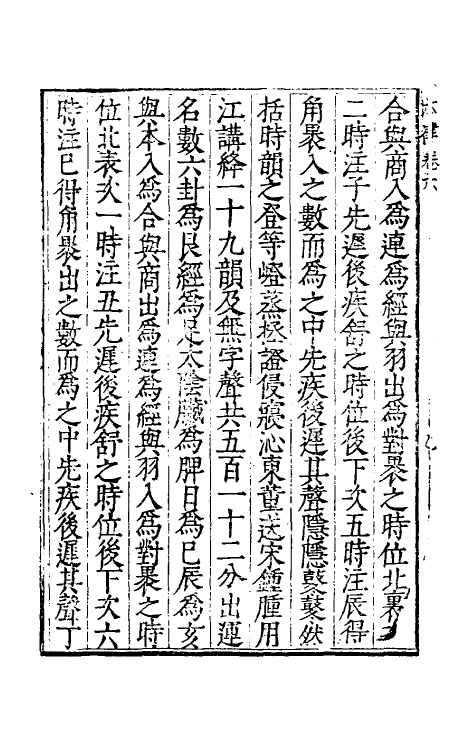 合與商入為連為經與羽出為對晷之時位北裏
二時注子先遲後疾舒之時位後下次五時注辰得
角晷入之數而為之中先疾後遲其聲隱隱鼕鼕然
括時韻之登等嶝蒸拯證侵寢沁東董送宋鍾腫用
江講絳一十九韻及無字聲共五百一十二分出運
名數六卦為艮經為足太陰臟為脾日為己辰為亥
與本入為合與商出為連為經與羽入為對晷之時
位北表次一時注丑先遲後疾舒之時位後下次六
時注巳得角晷出之數而為之中先疾後遲其聲丁
律卷六